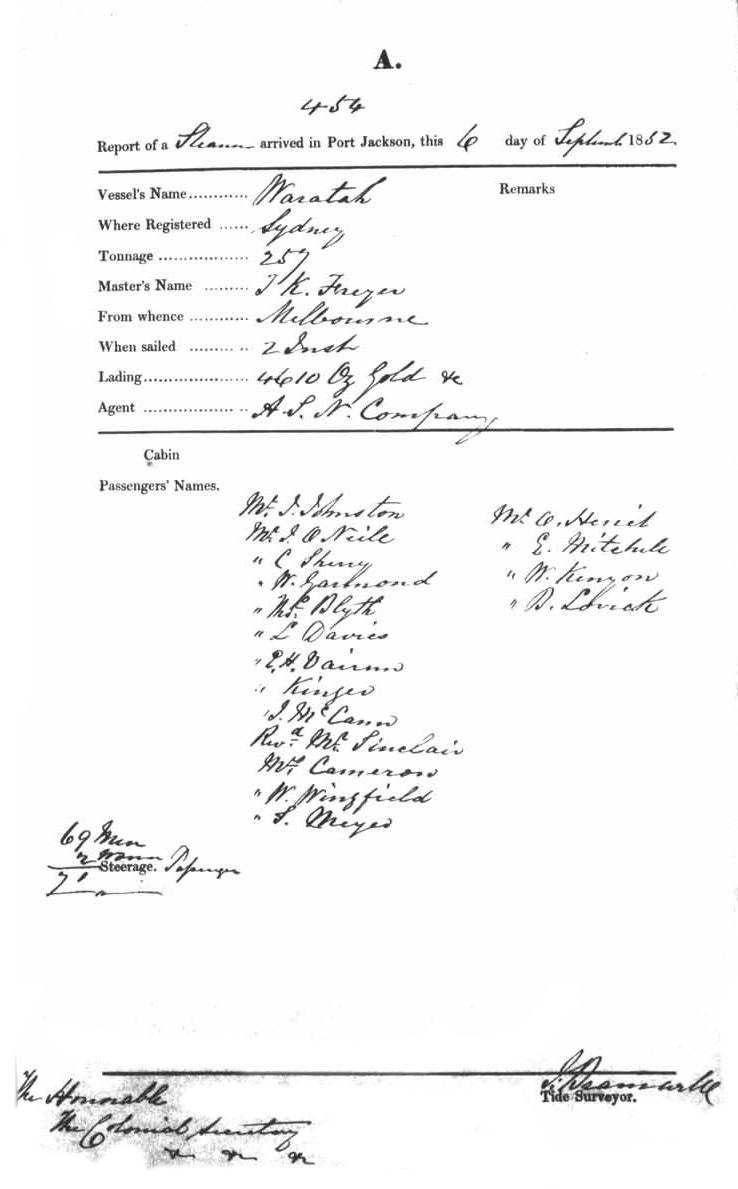 A.
454
Report of a Steamer arrived in Port Jackson, this 6 day of Septemb. 1852
Vessel's Name............ Waratah Remarks
Where Registered ...... Sydney
Tonnage .................. 257
Master's Name ......... T K. Freyer
From whence ............ Melbourne
When sailed ......... .. 2 Inst
Lading..................... 4610 Oz Gold &c
Agent ................ .. A. S. N. Company
Cabin
Passengers' Names.
Mr. J. Johnston
Mr. J. O Neile
" C Sherry
" W. Garmond
" Blyth
" L Davies
" E. H.
"
" J. McCann
Revd. Mr. Sinclair
Cameron
" W. Wingfield
" S. Meyer
Mr. O. Heriot
" E. Mitchele
" W. Kenyon
" B. Lovick
69 Men
2 Women
71 Steerage. Passenger
Tide Surveyor.
The Honorable
The Colonial Secretary
&c &c &c